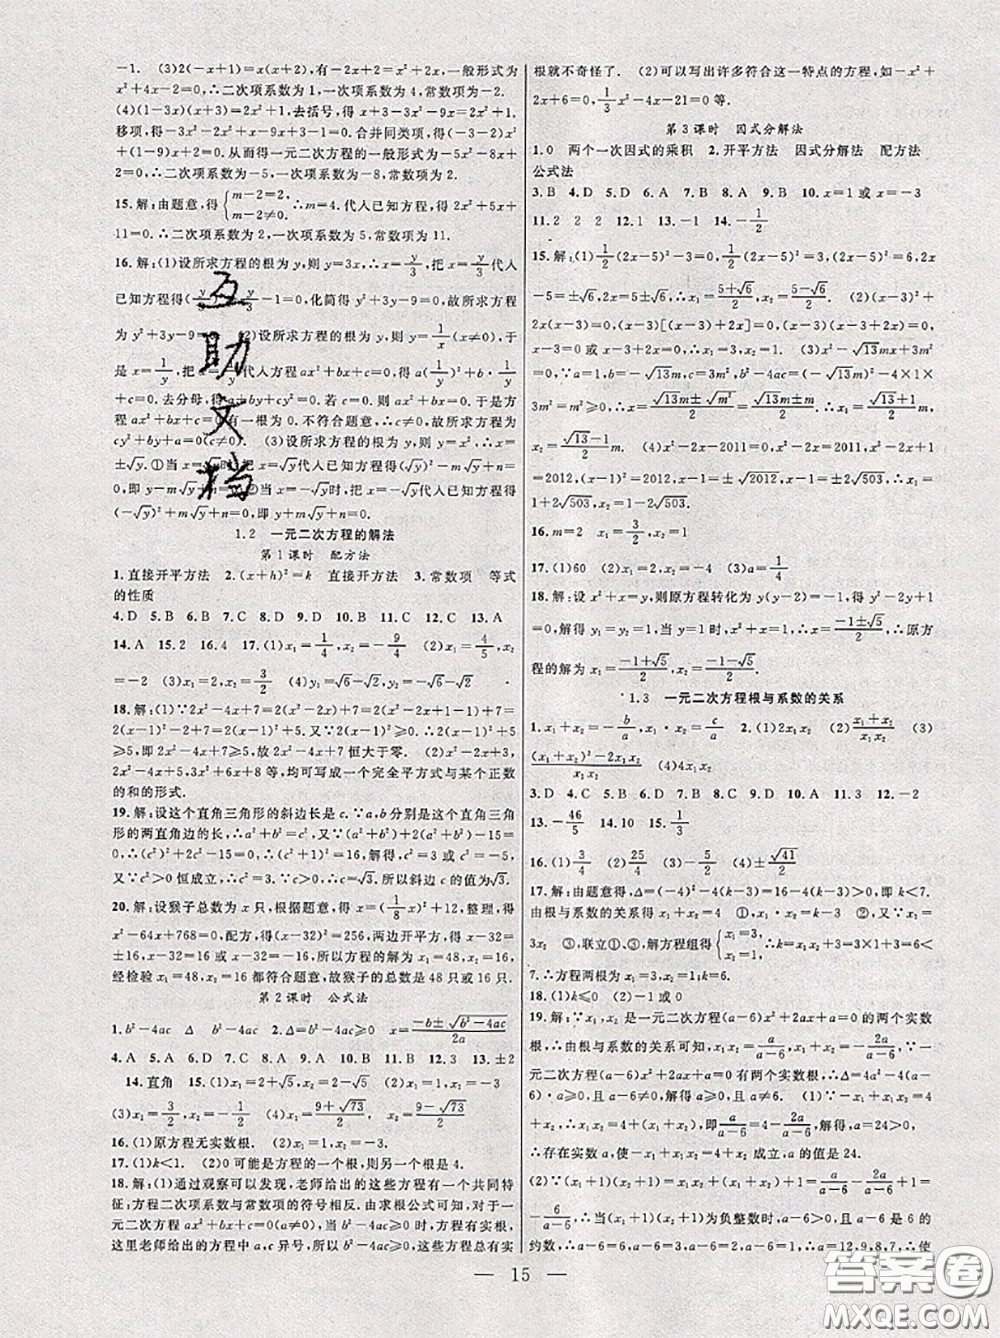 -1. (3)2(-x+1)=x(x+2),有-2x+2=x²+2x,一般形式为
-x²-4x+2=0,∴二次项系数为1,一次项系数为4,常数项为-2.
(4)(1-3x)(x+3)=2x²+1,去括号,得 x+3-3x²-9x=2x²+1.
移项,得-3x²-2x²-8x+3-1=0.合并同类项,得-5x²-8x+2=0,从而得一元二次方程的一般形式为-5x²-8x+2=0,∴二次项系数为-5,一次项系数为-8,常数项为2.
15.解:由题意,得{m-2=2, m-2≠0. ∴m=4.代入已知方程,得2x²+5x+
11=0.∴二次项系数为2,一次项系数为5,常数项为11.
16.解:(1)设所求方程的根为y,则y=3x,∴x=y/3,把x=y/3代人
-1=0,化简得y²+3y-9=0,故所求方程
(2)设所求方程的根为y,则y=1/x(x≠0),于
是x=1/y,把x=1/y代人方程ax²+bx+c=0,得a(1/y)²+b·
+c=0,去分母,得a+by+cy²=0.若c=0,则ax²+bx=0,于是方程
有一根为0,不符合题意,∴c≠0,故所求方程为
cy²+by+a=0(c≠0). (3)设所求方程的根为y,则y=x²,∴x=
±√y.①当x=√y时,把x=√y代人已知方程,得(√y)²-m√y+n=
0,即y-m√y+n=0;②当x=-√y时,把x=-√y代人已知方程,得
(-√y)²+m√y+n=0,即y+m√y+n=0.
1.2 一元二次方程的解法
第1课时 配方法
1.直接开平方法 2.(x+h)²=k 直接开方法 3.常数项 等式
的性质
4.D 5.B 6.B 7.D 8.D 9.D 10.B 11.D 12.A 13.A
14.A 15.2 16.4 17.(1)x₁=1/4,x₂=-9/4 (2)x₁=4/5,x₂
=-2 (3)x₁=2,x₂=3/2 (4)y₁=√6-√2,y₂=-√6-√2
18.解:(1)∵2x²-4x+7=2(x²-2x)+7=2(x²-2x+1-1)+7=
2(x²-2x+1)-2+7=2(x-1)²+5.又∵2(x-1)²≥0,∴2(x-1)²+5
≥5,即2x²-4x+7≥5,故2x²-4x+7恒大于零. (2)x²-2x+3,
2x²-2x+5,3x²+6x+8等,均可写成一个完全平方式与某个正数
的和的形式.
19.解:设这个直角三角形的斜边长是c.∵a,b分别是这个直角三角
形的两直角边的长,∴a²+b²=c²,又∵(a²+b²)²+2(a²+b²)-15=
0,∴(c²)²+2c²-15=0,∴(c²+1)²=16,解得c²=3或c²=-5.
又∵c²>0恒成立,∴c²=3.∴c=±√3.所以斜边c的值为√3.
20.解:设猴子总数为x只,根据题意,得x=(1/8x)²+12,整理,得
x²-64x+768=0,配方,得(x-32)²=256,两边开平方,得x-32=
±16,即x-32=16或x-32=-16.所以原方程的解为x₁=48,x₂=16.
经检验x₁=48,x₂=16都符合题意,故猴子的总数是48只或16只.
第2课时 公式法
1.b²-4ac Δ b²-4ac 2.Δ=b²-4ac≥0 x=(-b±√(b²-4ac))/2a
4.A 5.A 6.D 7.B 8.D 9.A 10.A 11.B 12.3 13.±2
14.直角 15.(1)x₁=2+√5,x₂=2-√5 (2)x₁=4,x₂=-1
(3)x₁=3/2,x₂=1/2 (4)x₁=(9+√73)/2 x₂=(9-√73)/2
16.(1)原方程无实数根. (2)x₁=1,x₂=-3.
17.(1)k<1. (2)0可能是方程的一个根,则另一个根是4.
18.解:(1)通过观察可以发现,老师给出的这些方程有一个共同特
征:方程二次项系数与常数项的符号相反.由求根公式可知,对于一
元二次方程ax²+bx+c=0(a≠0),当b²-4ac≥0时,方程有实根,
这里老师给出的方程中a,c异号,所以b²-4ac>0,这些方程总有实
根就不奇怪了. (2)可以写出许多符合这一特点的方程,如-x²+
2x+6=0,1/3x²-4x-21=0等.
第3课时 因式分解法
1.0 两个一次因式的乘积 2.开平方法 因式分解法 配方法
公式法
3.B 4.D 5.D 6.A 7.A 8.A 9.B 10.x=1或x=-3
11.2 2 2 12.1 13.-1 14.-1/2
15.解:(1)1/2(2x-5)²-3=0,1/2(2x-5)²=3,(2x-5)²=6,2x
-5=±√6,x₁=(5+√6)/2,x₂=(5-√6)/2. (2)x²(x-3)²+
2x(x-3)=0,x(x-3)[x(x-3)+2]=0,x(x-3)(x²-3x+2)=0,
x=0或x-3=0或x²-3x+2=0
∵a=1,b=-√13m,c=3m²,b²-4ac=(-√13m)²-4×1×
3m²=m²≥0,∴x=(√13m±√m²)/2=(√13m±m)/2.
2x=2011,x²-2x+1=
2012,(x-1)²=2012,x-1=±√2012,x-1=±2√503,∴x₁=
1+2√503,x₂=1-2√503.
16.m=2 x₁=3/2,x₂=1
17.(1)60 (2)x₁=1,x₂=2 (3)a=1/4
18.解:设x²+x=y,则原方程转化为y(y-2)=-1,得y²-2y+1
=0,解得y₁=y₂=1,当y=1时,x²+x=1,x=(-1±√5)/2,∴原方
程的解为x₁=(-1+√5)/2,x₂=(-1-√5)/2.
1.3 一元二次方程根与系数的关系
1.x₁+x₂=-b/a,x₁·x₂=c/a 2.(1)2x₁x₂ (2)(x₁+x₂)/x₁x₂ (3)
((x₁+x₂)²-2x₁x₂)/x₁x₂ (4)4x₁x₂
3.D 4.C 5.B 6.B 7.D 8.B 9.D 10.D 11.A 12.A
13.-46/5 14.10 15.1/3
16.(1)3/4 (2)25/4 (3)-5/2 (4)±√41/2
17.解:由题意得,Δ=(-4)²-4(k-3)=16-4(k-3)>0,即k<7.
由根与系数的关系得x₁+x₂=4 ①,x₁·x₂=k-3 ②,又∵x₁=
3x₂ ③,联立①、③,解方程组得{x₁=3, x₂=1. ∴k=x₁x₂+3=3×1+3=6<
7.∴方程两根为x₁=3,x₂=1;k=6.
18.(1)k≤0 (2)-1或0
19.解:∵x₁,x₂是一元二次方程(a-6)x²+2ax+a=0的两个实数
根,∴由根与系数的关系可知,x₁x₂=a/(a-6),x₁+x₂=-2a/(a-6).∵一
元二次方程(a-6)x²+2ax+a=0有两个实数根,∴Δ=4a²-4(a-6)
·a≥0,且a-6≠0,解得a≥0,且a≠6.
∴存在实数a,使-x₁+x₁x₂=4+x₂成立,a的值是24.
-6/(a-6),∴当(x₁+1)(x₂+1)为负整数时,a-6>0,且a-6是6的
约数,∴a-6=6,a-6=3,a-6=2,a-6=1,∴a=12,9,8,7,∴使
— 15 —
互
助
文
档
答案圈
MXQE.COM